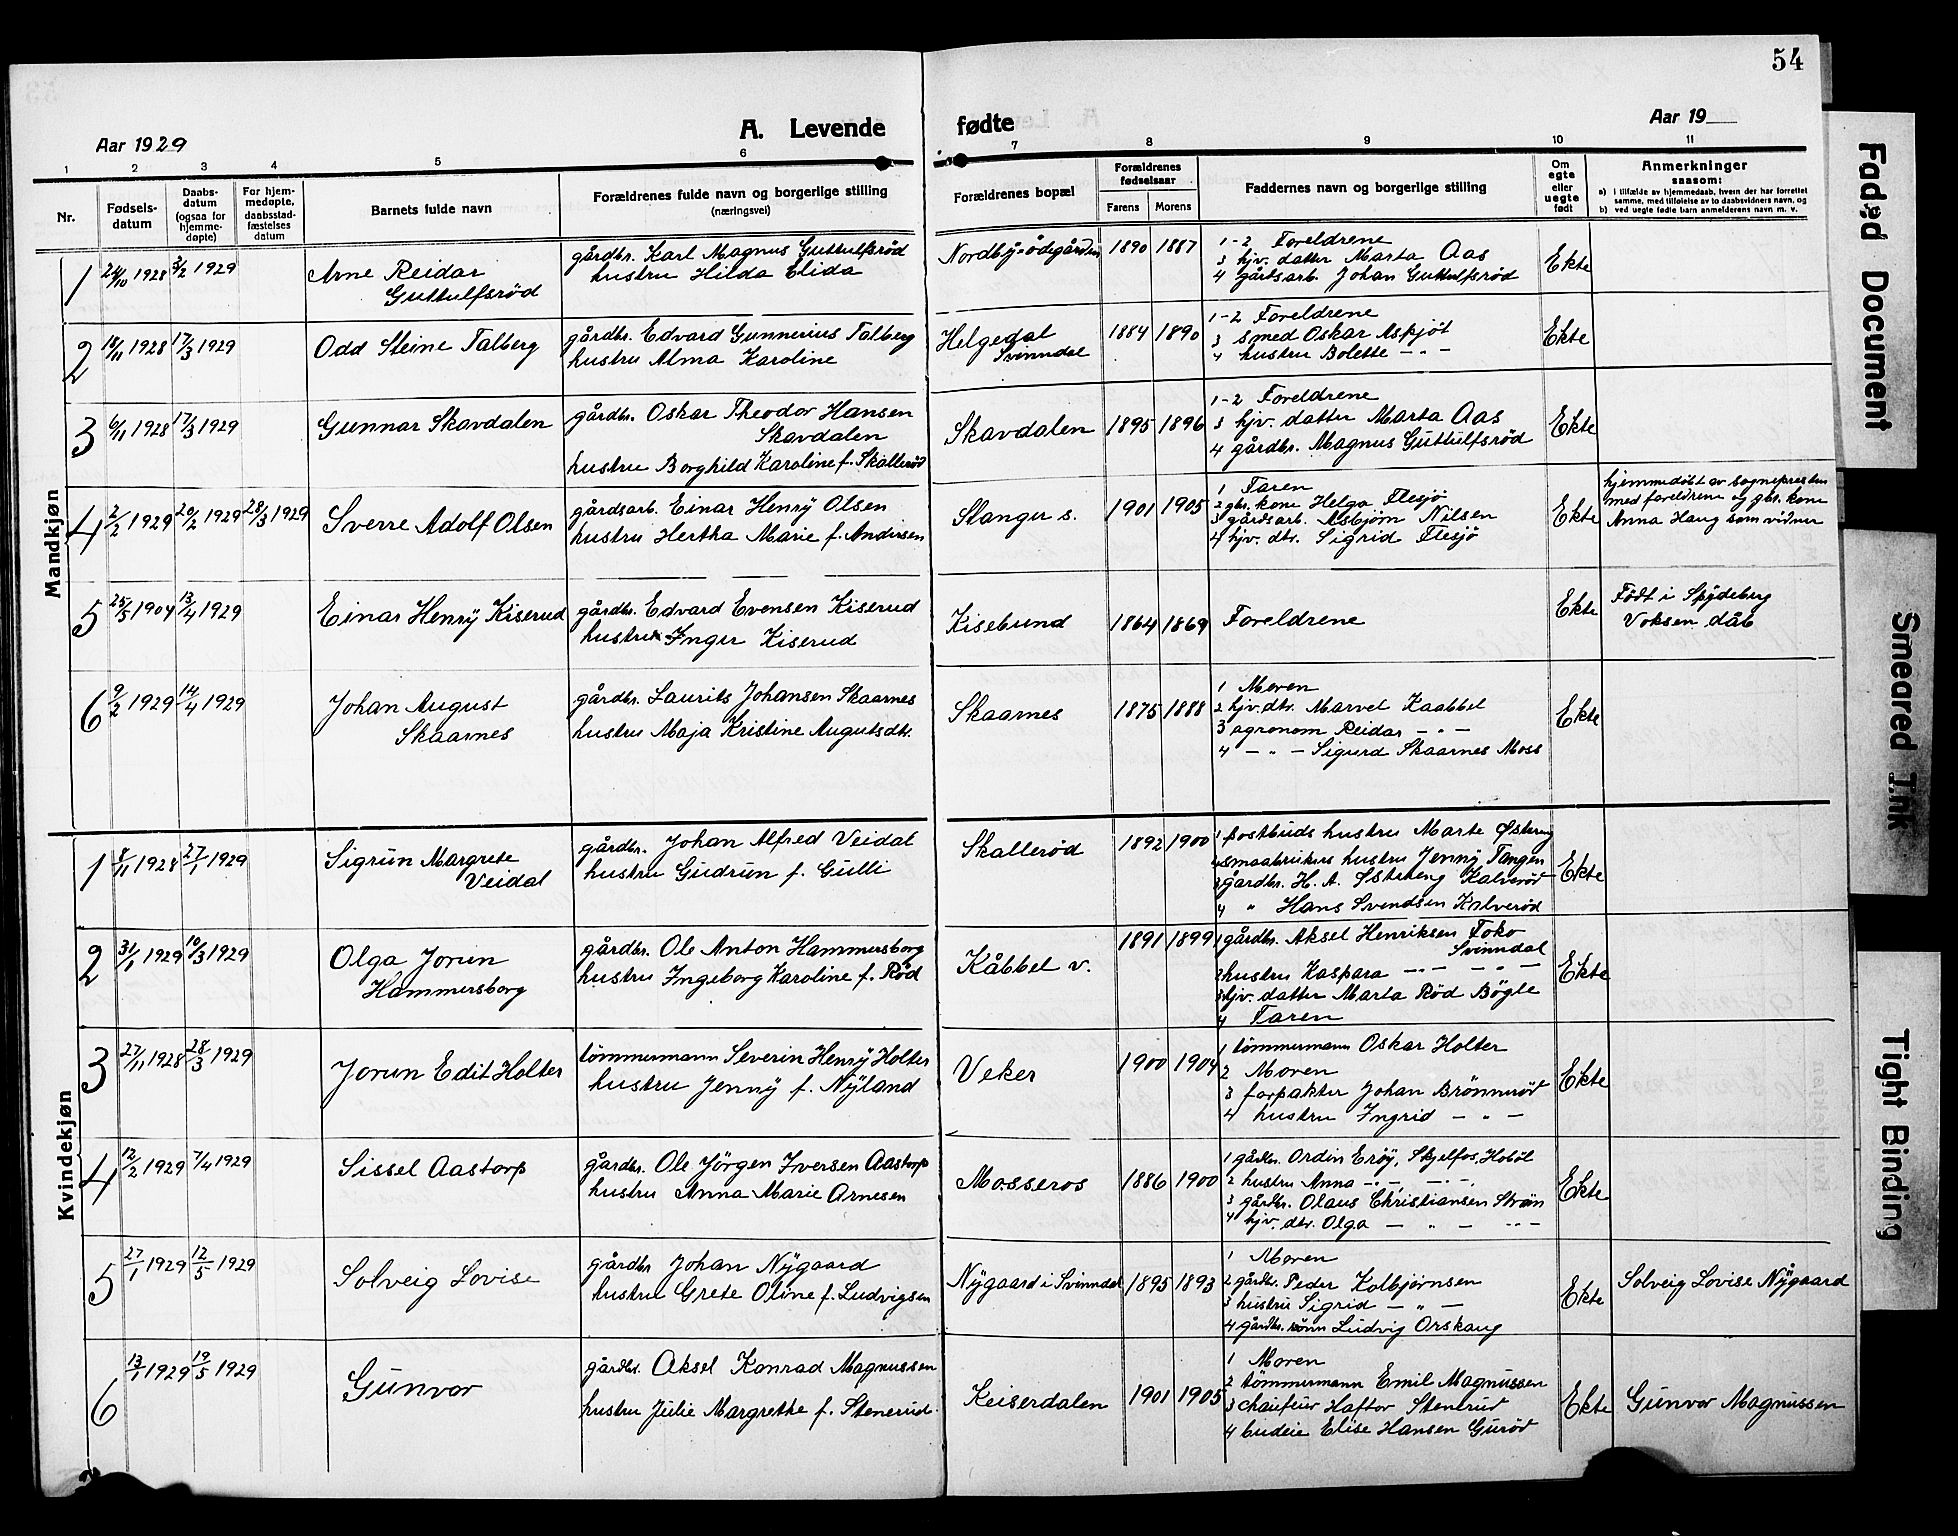 54
Aar 1929
A. Levende fødte
Aar 19
1 2 3 4 5 6 7 8 9 10 11
Nr.
Fødsels-
datum
Daabs-
datum
(ogsaa for
hjemme-
døpte)
For hjem-
medøpte,
daabsstad-
fæstelses
datum
Barnets fulde navn
Forældrenes fulde navn og borgerlige stilling
(næringsvei)
Forældrenes bopæl
Forældrenes
fødselsaar
Farens Morens
Faddernes navn og borgerlige stilling
Om
egte
eller
uegte
født
Anmerkninger
saasom:
a) i tilfælde av hjemmedaab, hvem der har forrettet
samme, med tilføielse av to daabsvidners navn, og
b) ved uegte fødte barn anmelderens navn m. v.
Mandkjøn
1
24/10 1928
3/2 1929
Arne Reidar
Guttulfsröd
gårdbr. Karl Magnus Guttulfsröd
hustru Hilda Elida
Nordby-ödegården
1890 1887
1-2 Foreldrene
3 hjv. datter Marta Aas
4 gårdsarb. Johan Guttulfsröd
Ekte
2
18/11 1928
17/3 1929
Odd Steine Talberg
gårdbr. Edvard Gunnerius Talberg
hustru Alma Karoline
Helgedal
Svinndal
1884 1890
1-2 Foreldrene
3 smed Oskar Aspjöt
4 hustru Bolette - " -
Ekte
3
6/11 1928
17/3 1929
Gunnar Skavdalen
gårdbr. Oskar Theodor Hansen
Skavdalen
hustru Borghild Karoline f. Skalleröd
Skavdalen
1895 1896
1-2 Foreldrene
3 hjv. datter Marta Aas
4 gårdbr. Magnus Guttulfsröd
Ekte
4
2/2 1929
20/2 1929
28/3 1929
Sverre Adolf Olsen
gårdsarb. Einar Henry Olsen
hustru Hertha Marie f. Andersen
Stanger s.
1901 1905
1 Faren
2 gbr. kone Helga Flesjö
3 gårdsarb. Asbjørn Nilsen
4 hjv. dtr. Sigrid Flesjö
Ekte
hjemmedöbt av sognepresten
med foreldrene og gbr. kone
Anna Haug som vidner
5
25/5 1904
13/4 1929
Einar Henry Kiserud
gårdbr. Edvard Evensen Kiserud
hustru Inger Kiserud
Kisebund
1864 1869
Foreldrene
Ekte
Födt i Spydeberg
Voksen dåb
6
9/2 1929
14/4 1929
Johan August
Skaarnes
gårdbr. Laurits Johansen Skaarnes
hustru Maja Kristine Augutsdtr.
Skaarnes
1875 1888
1 Moren
2 hjv. dtr. Marvel Kaabbel
3 agronom Reidar - " -
4 - " - Sigurd Skaarnes Moss
Ekte
Kvindekjøn
1
8/11 1928
27/1 1929
Sigrun Margrete
Veidal
gårdbr. Johan Alfred Veidal
hustru Gudrun f. Gulli
Skalleröd
1892 1900
1 postbuds hustru Marte Østeng
2 smaabrukers hustru Jenny Tangen
3 gårdbr. H. A. Østereng Kalveröd
4 " Hans Svendsen Kalveröd
Ekte
2
31/1 1929
10/3 1929
Olga Jorun
Hammersborg
gårdbr. Ole Anton Hammersborg
hustru Ingeborg Karoline f. Röd
Kåbbel v.
1891 1899
1 gårdbr. Aksel Henriksen Foko
Svinndal
2 hustru Kaspara - " - - " -
3 hjv. datter Marta Röd Bögle
4 Faren
Ekte
3
27/11 1928
28/3 1929
Jorun Edit Holter
tömmermann Severin Henry Holter
hustru Jenny f. Nyland
Veker
1900 1904
1 tömmermann Oskar Holter
2 Moren
3 forpakter Johan Brönneröd
4 hustru Ingrid - " -
Ekte
4
12/2 1929
7/4 1929
Sissel Aastorp
gardbr. Ole Jörgen Iversen Aastorp
hustru Anna Marie Arnesen
Mosseros
1886 1900
1 gårdbr. Ordin Eröy, Skjelfos, Hoböl
2 hustru Anna - " - - " -
3 gårdbr. Olaus Christiansen Strøn
4 hjv. dtr. Olga - " - - " -
Ekte
5
27/1 1929
12/5 1929
Solveig Lovise
gårdbr Johan Nygaard
hustru Grete Oline f. Ludvigsen
Nygaard i Svinndal
1895 1893
1 Moren
2 gårdbr. Peder Kolbjørnsen
3 hustru Sigrid - " -
4 gårdbr. sönn Ludvig Orskaug
Ekte
Solveig Lovise Nygaard
6
13/1 1929
19/5 1929
Gunvor
gårdbr. Aksel Konrad Magnussen
hustru Julie Margrethe f. Stenerud.
Keiserdalen
1901 1905
1 Moren
2 tömmermann Emil Magnussen
3 chauffeur Haftor Stenrud
4 budeie Elise Hansen Guröd
Ekte
Gunvor Magnussen
Faded Document
Smeared Ink
Tight Binding